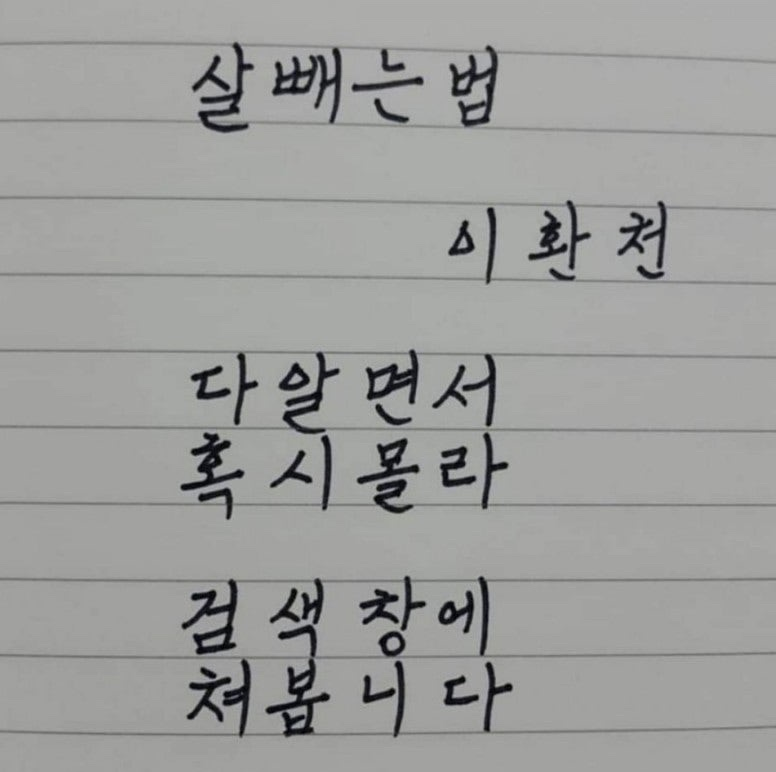 살 빼는 법
이환천
다 알면서
혹시몰라
검색창에
쳐봅니다